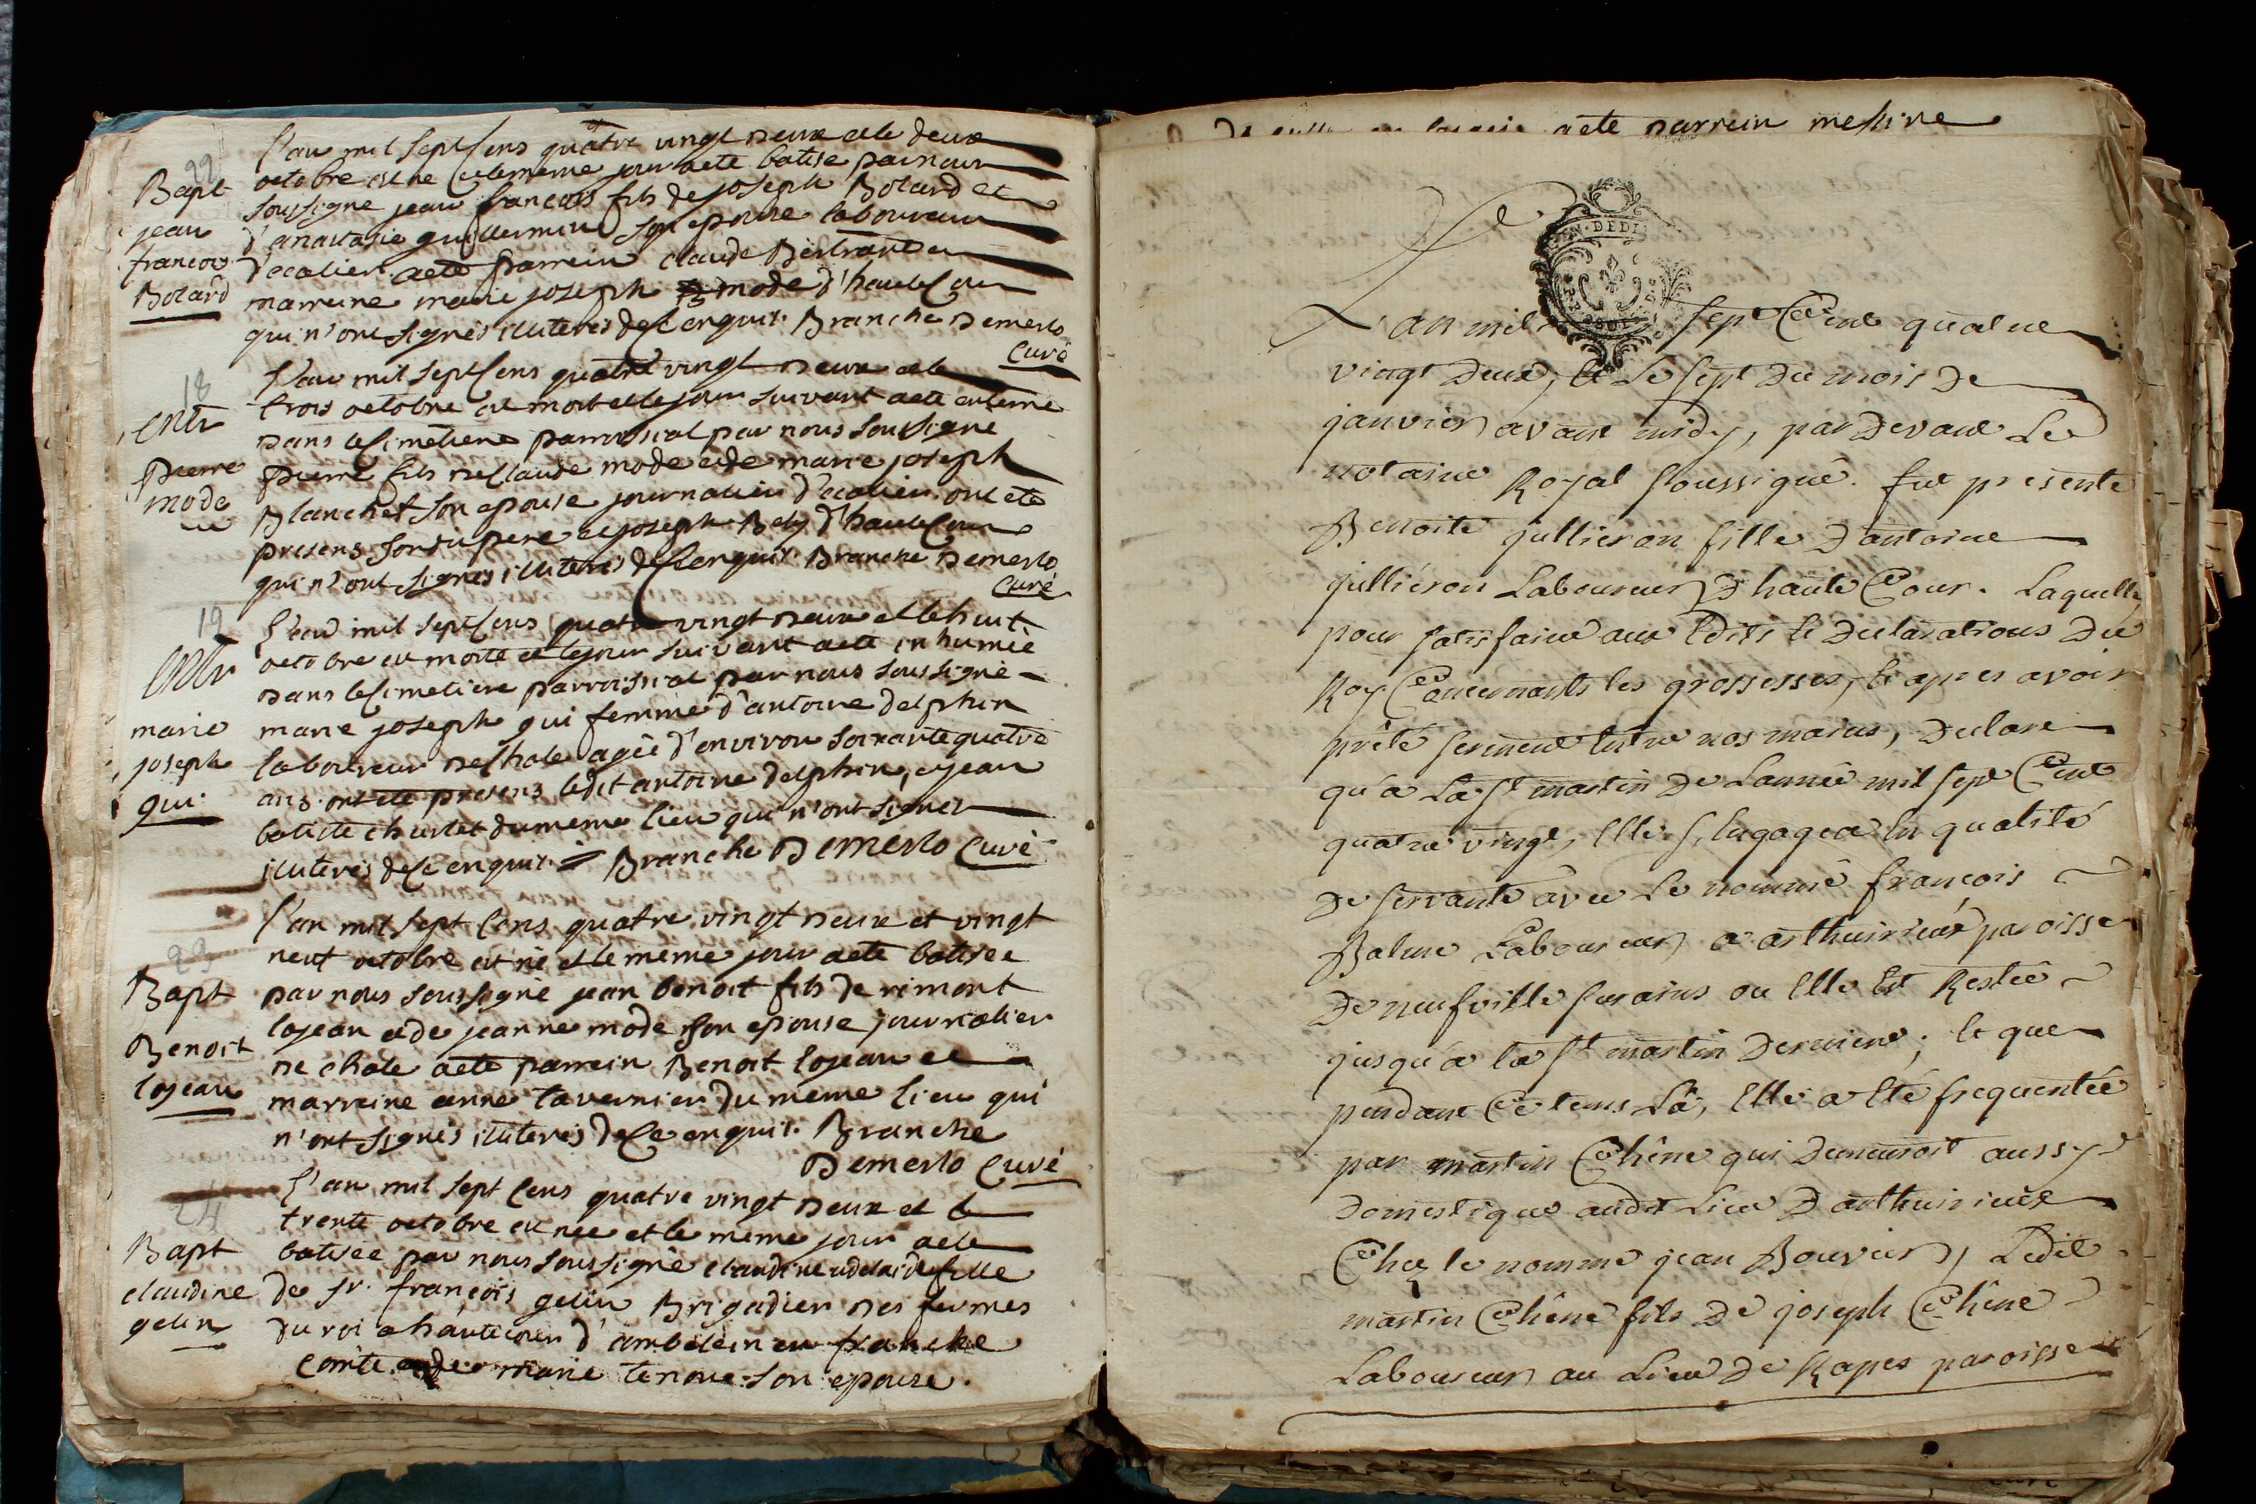 22
Bapt
jean
francois
Botard
l'an mil sept Cens quatre vingt Deux et le deux
octobre est ne et le meme jour a ete batise par nous
soussigne jean francois fils de joseph Botard et
d'anastasie guillermin son epouse laboureur
d'ecolieu. a ete parrein claude Bertrand et
marreine marie joseph mode d'hautecour
qui n'ont signés illiteres de ce enquis. Branche Demerlo
Curé
18
entr
pierre
mode
l'an mil sept Cens quatre vingt Deux et le
trois octobre est mort et le jour suivant a ete enterré
Dans le Cimetiere parroissial par nous soussigne
pierre fils de Claude mode et de marie joseph
Blanchet son epouse journalier d'ecolieu. ont ete
presens sondit pere et joseph Bely d'hautecour
qui n'ont signés illiteres de ce enquis. Branche Demerlo
Curé
19
entr
marie
joseph
qui
l'an mil sept Cens quatre vingt Deux et le huit
octobre est morte et le jour suivant a ete inhumée
Dans le Cimetiere parroissial par nous soussigné
marie joseph qui femme d'antoine delphin
laboureur de Chale agée d'environ soixante quatre
ans. ont ete presens ledit antoine delphin, et jean
batiste du meme lieu qui n'ont signer
illiteres de ce enquis. Branche Demerlo Curé
23
Bapt
Benoit
lojean
l'an mil sept Cens quatre vingt Deux et vingt
neuf octobre est né et le meme jour a ete batisee
par nous soussigné jean benoit fils de rimont
lojean et de jeanne mode son epouse journalier
de chale a ete parrein Benoit lojean et
marreine anne tavernier du meme lieu qui
n'ont signés illiteres de ce enquis. Branche
Demerlo Curé
24
Bapt
claudine
gelin
l'an mil sept Cens quatre vingt Deux et le
trente octobre est nee et le meme jour a ete
batisée par nous soussigné claudine adelaide fille
de sr. françois gelin Brigadier des fermes
du roi a hautecour d' en franche
comté et de marie tenoue son epouse.
a ete parrein messire
L'an mil sept Cent quatre
vingt Deux, & Le sept Du mois De
janvier avant midy, par Devant Le
notaire Royal soussigné. fut presente
Benoite jullieron fille D'antoine
jullieron Laboureur D'haute Cour. Laquelle
pour satisfaire aux Edits & Declarations Du
Roy Concernants les grossesses, & apres avoir
prêté serment entre nos mains, Declare
qu'a La St martin De L'année mil sept Cent
quatre vingt, Elle S'engagea En qualité
De servante avec Le nommé françois
Balme Laboureur a arthuirieux paroisse
De neufville sur ains ou Elle Est Restée
jusqu'a la St martin Derniere; & que
pendant Ce tems La, Elle a Eté frequentée
par martin Chêne qui Demeuroit aussy
Domestique audit Lieu D'arthuirieux
Chez le nommé jean Bouvier, Ledit
martin Chêne fils De joseph Chêne
Laboureur au Lieu De Rapes paroisse